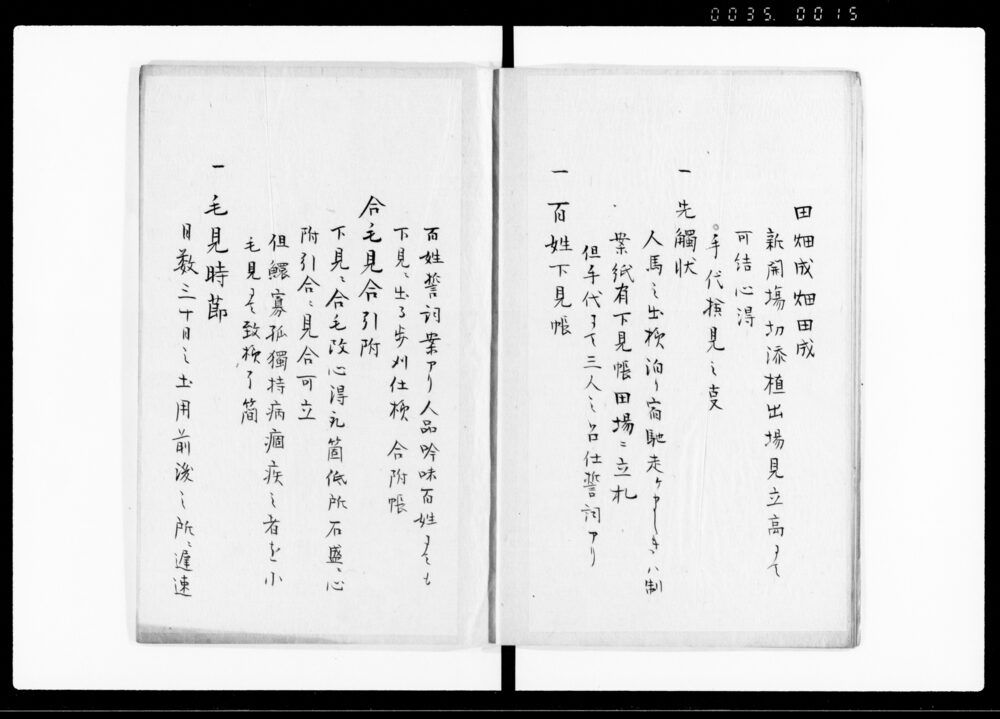 0035. 0015
田畑成畑田成
新開場切添植出場見立高
可結心得
手代検見之
一 先觸状
人馬之出検泊り宿馳走ケ
案紙有下見帳田場ニ立札
但手代ニて三人之召仕誓詞アリ
一 百姓下見帳
百姓誓詞案アリ人品吟味百姓
下見ニ出る歩刈仕検 合附帳
合毛見合引附
下見ニ合毛改心得孔箇低所石盛ニ心
附引合ニ見合可立
但鰥寡孤獨持病痼疾之者を小
毛見ニて致検了簡
一 毛見時節
日数三十日之土用前後之所ニ遅速